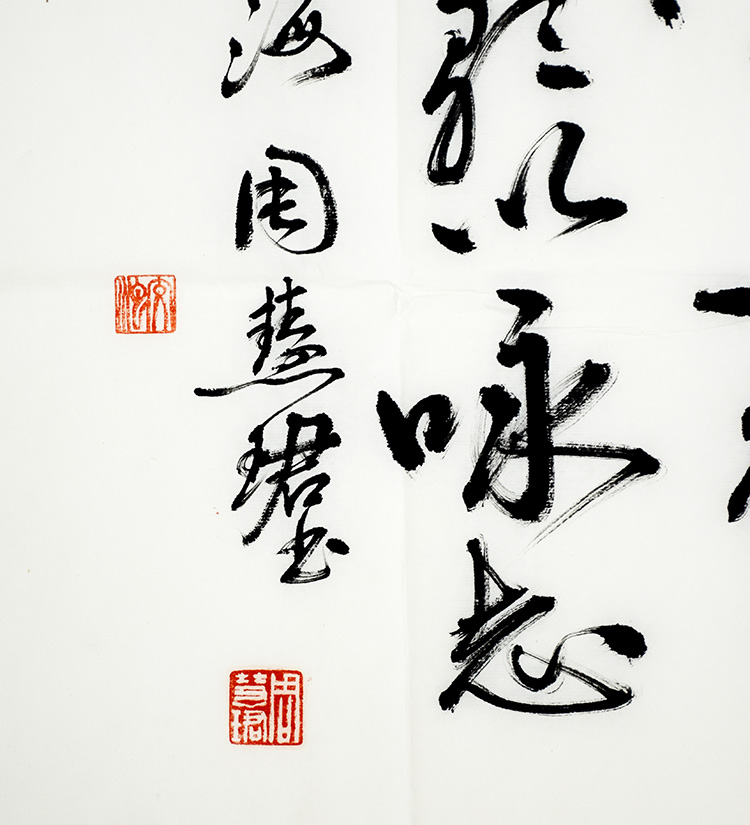 歌以咏志
海周慧珺书
周慧珺